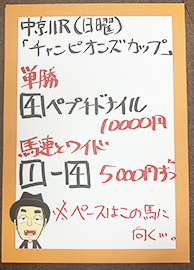 中京11R(日曜)
「チャンピオンズカップ」
単勝
4 ペプチドナイル
10000円
馬連とワイド
1-4 5000円ずつ
※ペースはこの馬に
向く…。